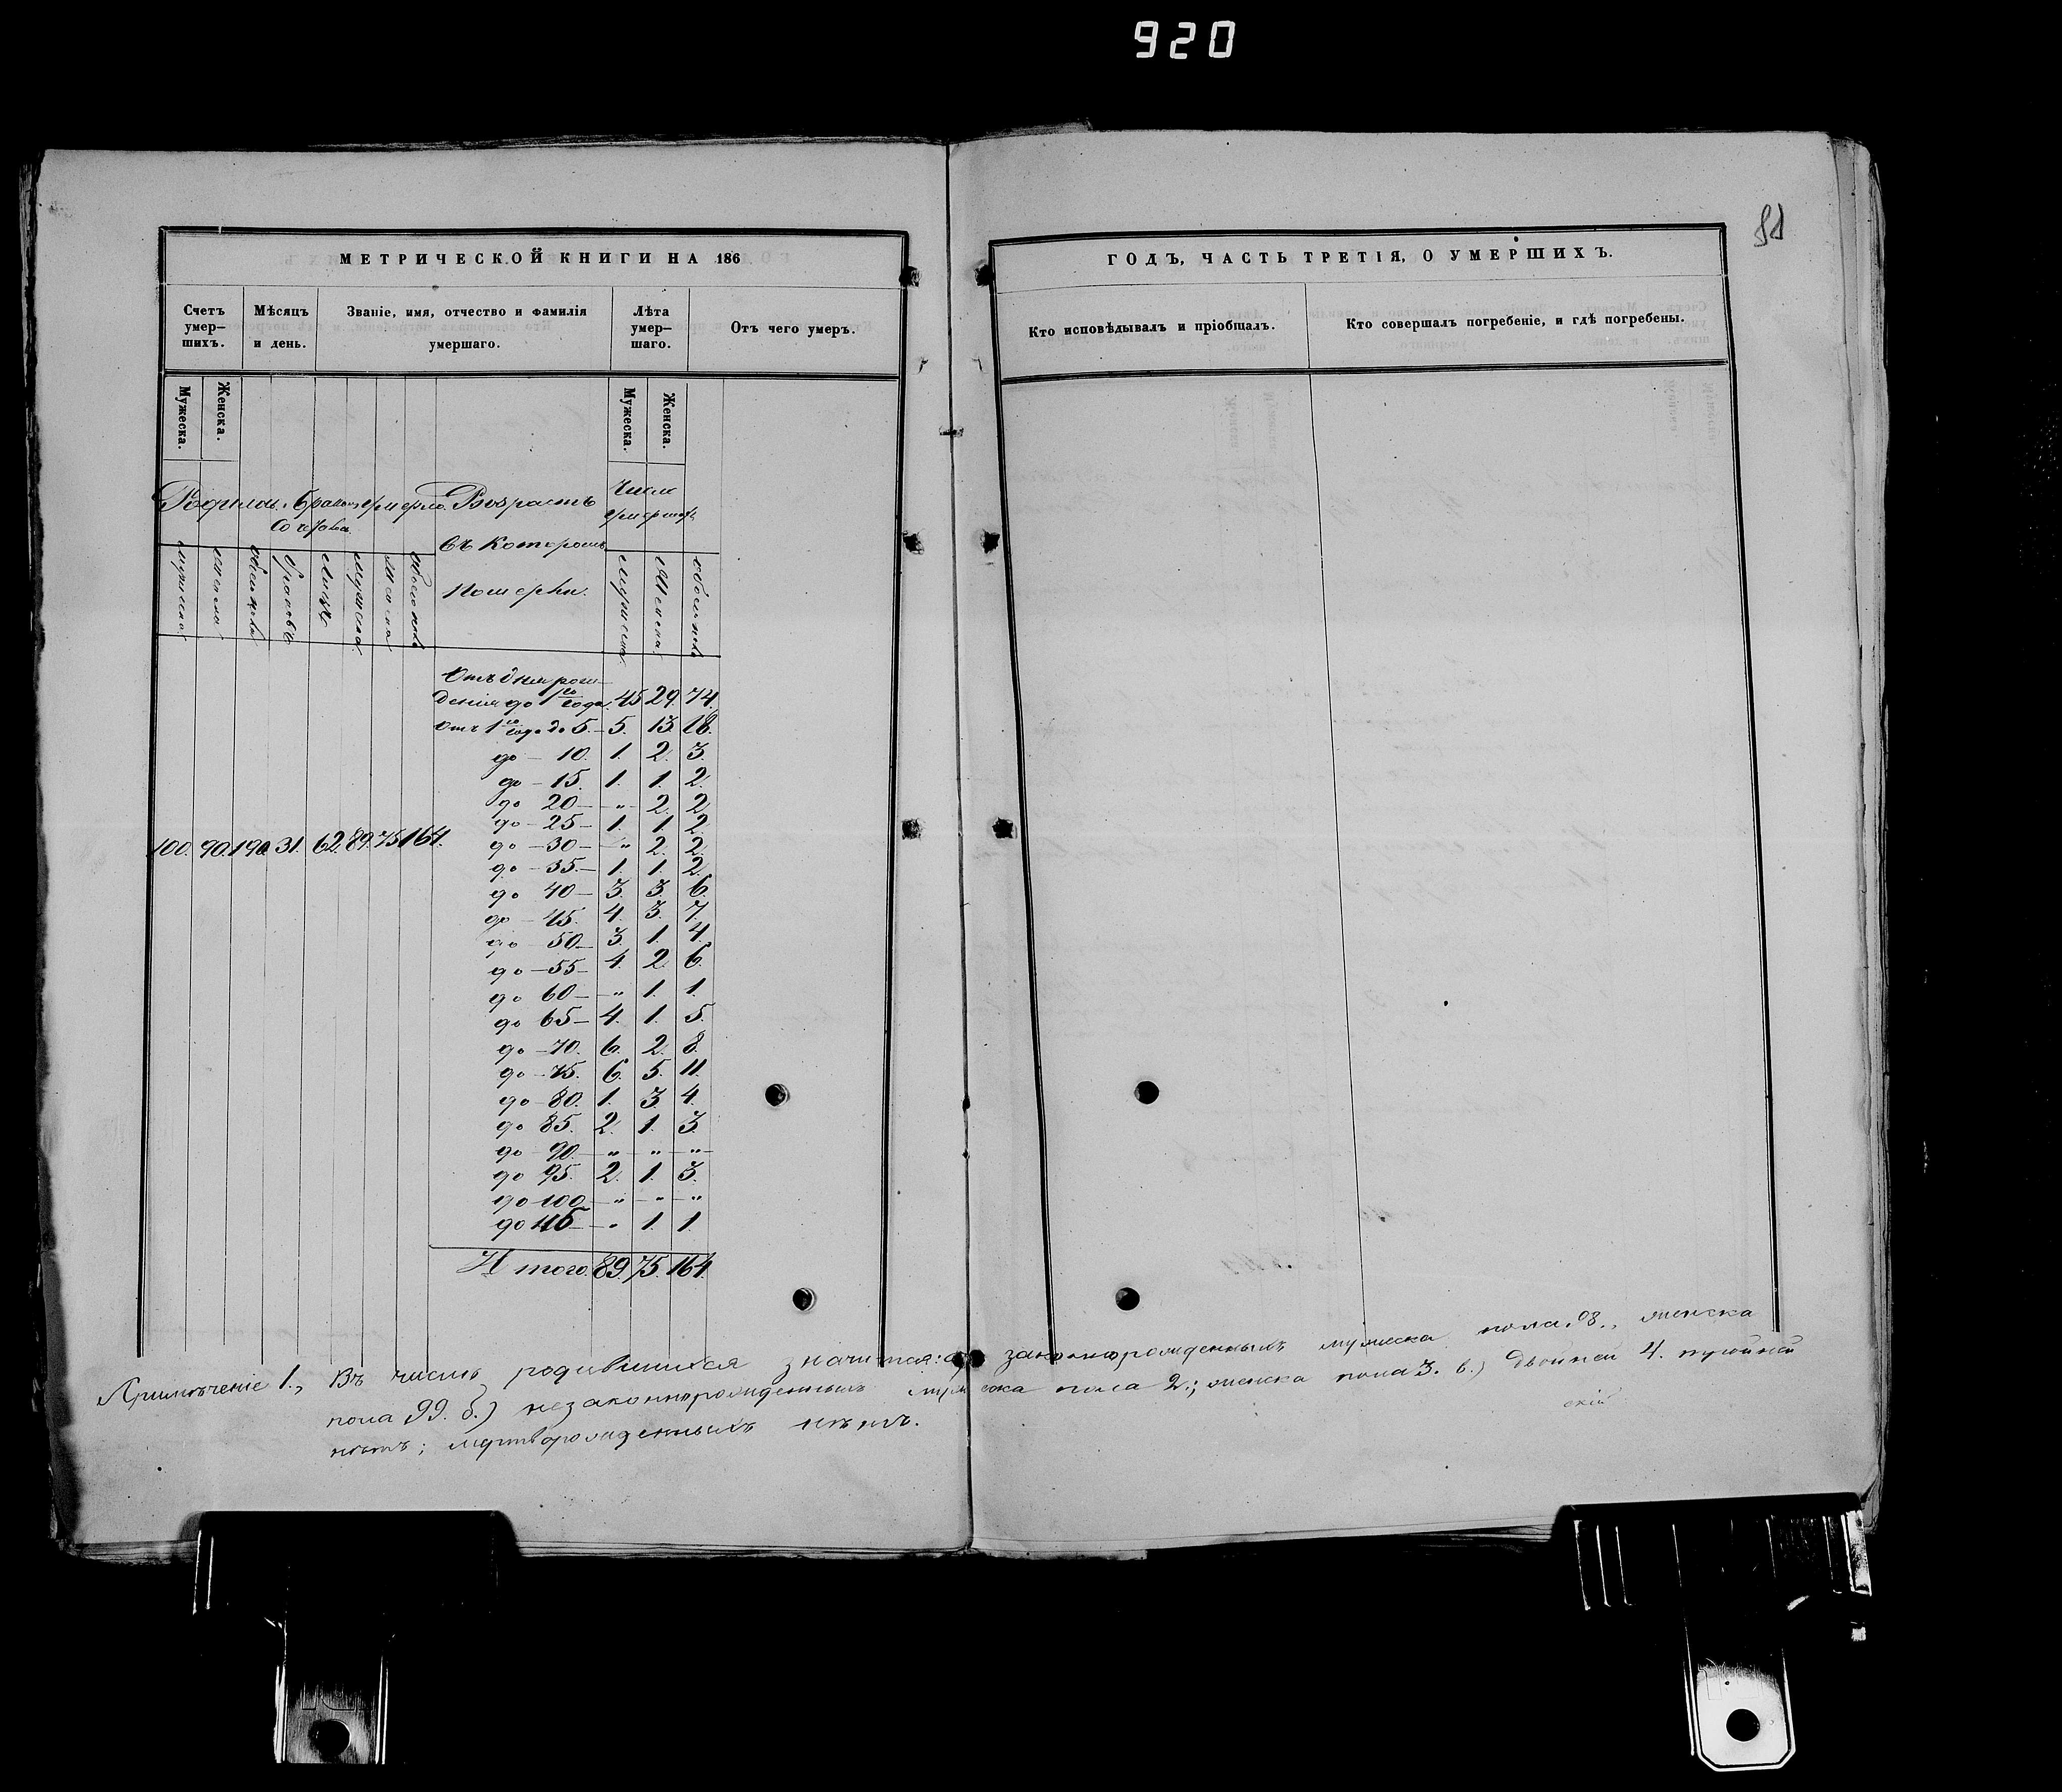 920
81
МЕТРИЧЕСКОЙ КНИГИ НА 186
Счетъ умер–шихъ.
Мѣсяцъ и день.
Званіе, имя, отчество и фамилія умершаго.
Лѣта умер–шаго.
Отъ чего умеръ.
Мужеска.
Женска.
Мужеска.
Женска.
Родилось
Бракомъ сочетава
Умерло
Возрастъ
Число умерш
въ которомъ
померли.
мужеска
женска
обоего пола
браковъ
лицъ
мужеска
женска
обоего пола
мужеска
женска
обоего пола
Отъ дня рож–
денія до 1го года. 45 29. 74.
отъ 1го года до 5.– 5. 13 18.
до – 10. 1. 2. 3.
до – 15. 1. 1. 2.
до 20 – „ 2. 2.
до – 25 – 1. 1. 2.
100. 90. 190. 31. 62. 89. 75 164.
до – 30 – „ 2. 2.
до – 35. – 1. 1. 2.
до 40 – 3. 3. 6.
до – 45. 4. 3. 7.
до 50 – 3. 1. 4.
до – 55 – 4. 2. 6.
до 60 – „ 1. 1.
до 65 – 4. 1. 5.
до – 70. 6. 2. 8.
до – 75. 6. 5. 11.
до – 80. 1. 3. 4.
до 85. 2. 1. 3.
до 90. – „ – „ – „ –
до 95. 2. 1. 3.
до 100 – „ – „ – „
до 115 – „ 1. 1.
Итого. 89. 75. 164.
ГОДЪ, ЧАСТЬ ТРЕТІЯ, О УМЕРШИХЪ.
Кто исповѣдывалъ и пріобщалъ.
Кто совершалъ погребеніе, и гдѣ погребены.
Примѣчаніе 1., Въ числѣ родившихся значится: законнорожденныхъ мужеска пола женска
пола б.) незаконнорожденныхъ мужеска пола 2.; женска пола 3. в.) двойней 4. тройней
нѣтъ; мертворожденныхъ нѣтъ.
скій